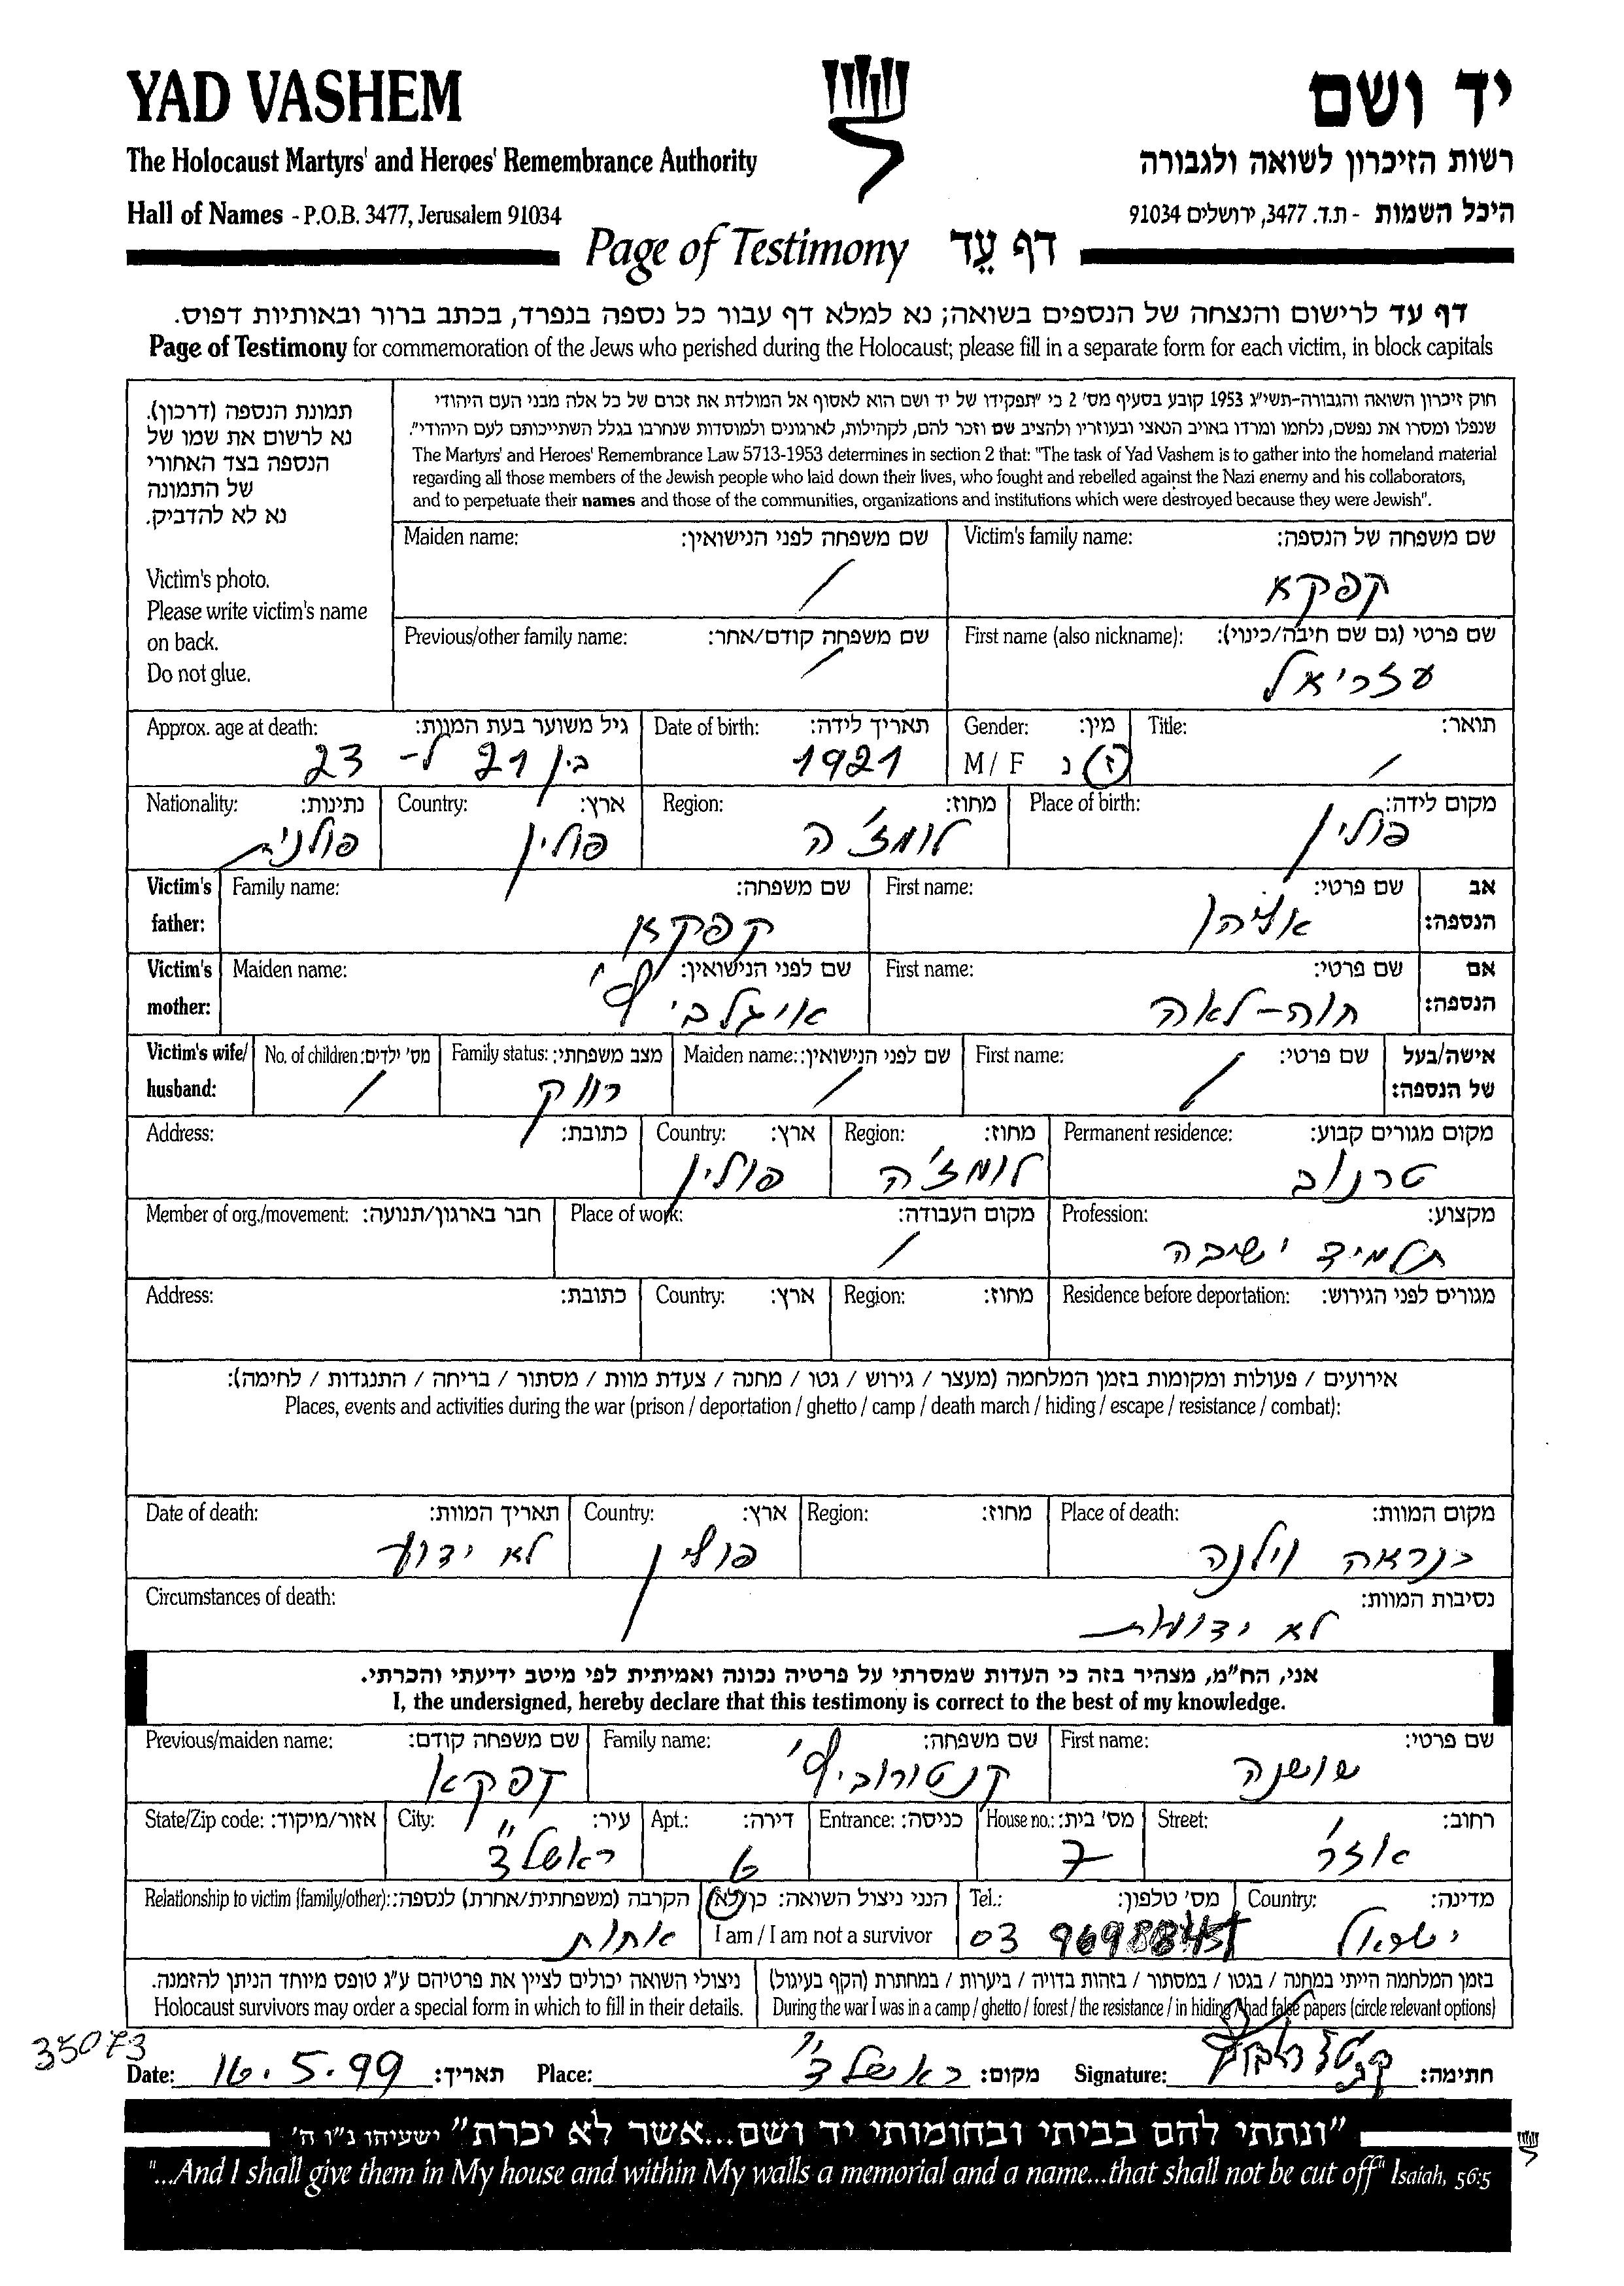 YAD VASHEM
יד ושם
The Holocaust Martyrs' and Heroes' Remembrance Authority
רשות הזיכרון לשואה ולגבורה
Hall of Names - P.O.B. 3477, Jerusalem 91034
היכל השמות - ת.ד. 3477, ירושלים 91034
Page of Testimony דף עֵד
דף עד לרישום והנצחה של הנספים בשואה; נא למלא דף עבור כל נספה בנפרד, בכתב ברור ובאותיות דפוס.
Page of Testimony for commemoration of the Jews who perished during the Holocaust; please fill in a separate form for each victim, in block capitals
תמונת הנספה (דרכון).
נא לרשום את שמו של
הנספה בצד האחורי
של התמונה
נא לא להדביק.
Victim's photo.
Please write victim's name
on back.
Do not glue.
חוק זיכרון השואה והגבורה-תשי"ג 1953 קובע בסעיף מס' 2 כי "תפקידו של יד ושם הוא לאסוף אל המולדת את זכרם של כל אלה מבני העם היהודי
שנפלו ומסרו את נפשם, נלחמו ומרדו באויב הנאצי ובעוזריו ולהציב שם וזכר להם, לקהילות, לארגונים ולמוסדות שנחרבו בגלל השתייכותם לעם היהודי".
The Martyrs' and Heroes' Remembrance Law 5713-1953 determines in section 2 that: "The task of Yad Vashem is to gather into the homeland material
regarding all those members of the Jewish people who laid down their lives, who fought and rebelled against the Nazi enemy and his collaborators,
and to perpetuate their names and those of the communities, organizations and institutions which were destroyed because they were Jewish".
Victim's family name: שם משפחה של הנספה:
קפקא
Maiden name: שם משפחה לפני הנישואין:
/
First name (also nickname): שם פרטי (גם שם חיבה/כינוי):
עזריאל
Previous/other family name: שם משפחה קודם/אחר:
/
Title: תואר:
/
Gender: מין:
M / F ז נ
Date of birth: תאריך לידה:
1921
Approx. age at death: גיל משוער בעת המוות:
בין 21 ל- 23
Place of birth: מקום לידה:
פולין
Region: מחוז:
לומז'ה
Country: ארץ:
פולין
Nationality: נתינות:
פולנית
Victim's father: אב הנספה:
First name: שם פרטי:
אליהו
Family name: שם משפחה:
קפקא
Victim's mother: אם הנספה:
First name: שם פרטי:
חוה-לאה
Maiden name: שם לפני הנישואין:
Victim's wife/ husband: אישה/בעל של הנספה:
First name: שם פרטי:
/
Maiden name: שם לפני הנישואין:
/
Family status: מצב משפחתי:
רווק
No. of children: מס' ילדים:
/
Permanent residence: מקום מגורים קבוע:
טרנוב
Region: מחוז:
לומז'ה
Country: ארץ:
פולין
Address: כתובת:
Profession: מקצוע:
תלמיד ישיבה
Place of work: מקום העבודה:
/
Member of org./movement: חבר בארגון/תנועה:
Residence before deportation: מגורים לפני הגירוש:
Region: מחוז:
Country: ארץ:
Address: כתובת:
אירועים / פעולות ומקומות בזמן המלחמה (מעצר / גירוש / גטו / מחנה / צעדת מוות / מסתור / בריחה / התנגדות / לחימה):
Places, events and activities during the war (prison / deportation / ghetto / camp / death march / hiding / escape / resistance / combat):
Place of death: מקום המוות:
כנראה וילנה
Region: מחוז:
Country: ארץ:
פולין
Date of death: תאריך המוות:
לא ידוע
Circumstances of death: נסיבות המוות:
לא ידועות
אני, הח"מ, מצהיר בזה כי העדות שמסרתי על פרטיה נכונה ואמיתית לפי מיטב ידיעתי והכרתי.
I, the undersigned, hereby declare that this testimony is correct to the best of my knowledge.
First name: שם פרטי:
שושנה
Family name: שם משפחה:
קנטורוביץ'
Previous/maiden name: שם משפחה קודם:
קפקא
Street: רחוב:
House no.: מס' בית:
7
Entrance: כניסה:
Apt.: דירה:
6
City: עיר:
ראשל"צ
State/Zip code: אזור/מיקוד:
Country: מדינה:
ישראל
Tel.: מס' טלפון:
03
הנני ניצול השואה: כן/לא
I am / I am not a survivor
Relationship to victim (family/other): הקרבה (משפחתית/אחרת) לנספה:
אחות
בזמן המלחמה הייתי במחנה / בגטו / במסתור / בזהות בדויה / ביערות / במחתרת (הקף בעיגול)
During the war I was in a camp / ghetto / forest / the resistance / in hiding / had false papers (circle relevant options)
ניצולי השואה יכולים לציין את פרטיהם ע"ג טופס מיוחד הניתן להזמנה.
Holocaust survivors may order a special form in which to fill in their details.
35073
Date: 16.5.99 תאריך: Place: ראשל"צ מקום: Signature: חתימה:
"ונתתי להם בביתי ובחומותי יד ושם...אשר לא יכרת" ישעיהו נ"ו ה'
"...And I shall give them in My house and within My walls a memorial and a name...that shall not be cut off" Isaiah, 56:5